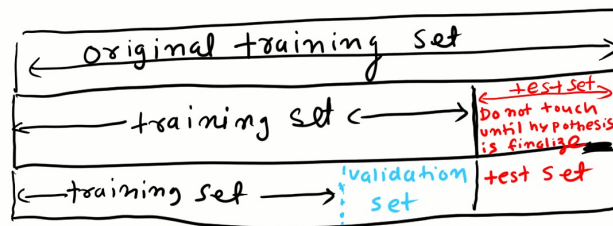 original training set
training set
test set
Do not touch
until hypothesis
is finalize
training set
validation
set
test set